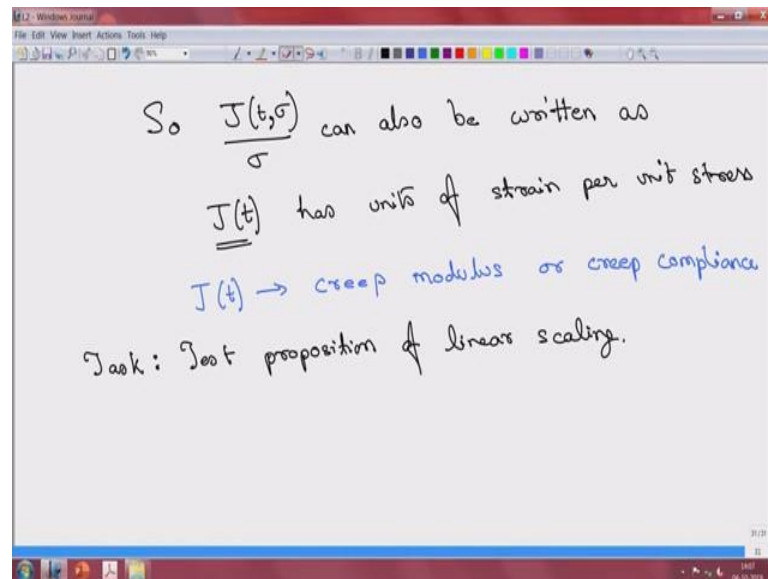 L2 - Windows Journal
File Edit View Insert Actions Tools Help
So J(t,σ)/σ can also be written as
J(t) has units of strain per unit stress
J(t) → creep modulus or creep compliance
Task: Test proposition of linear scaling.
31/31
31